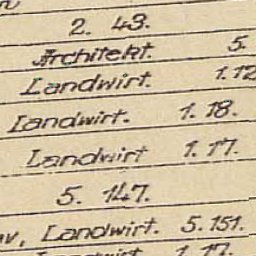 2. 43.
Architekt. 5.
Landwirt. 1.12
Landwirt. 1.18.
Landwirt 1.17.
5. 147.
Landwirt. 5.151.
Landwirt 1.17.